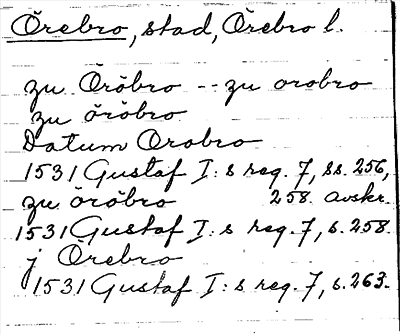 Örebro, stad, Örebro l.
zu Öröbro -- zu orobro
zu öröbro
Datum Orobro
1531 Gustaf I:s reg. 7, ss. 256,
zu öröbro 258. avskr.
1531 Gustaf I:s reg. 7, s. 258.
j Örebro
1531 Gustaf I:s reg. 7, s. 263.